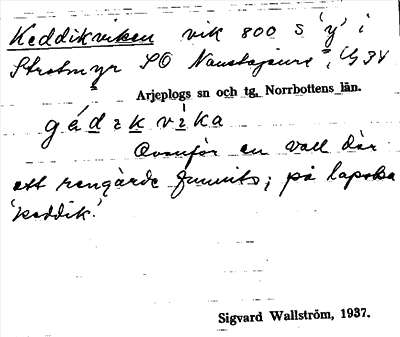 Keddikviken vik 800 S 'y' i
Strotmyr SO Naustajaure, Ug 34
Arjeplogs sn och tg, Norrbottens län.
gádikvika
Ovanför en vall där
ett rengärde funnits; på lapska
'keddik'.
Sigvard Wallström, 1937.